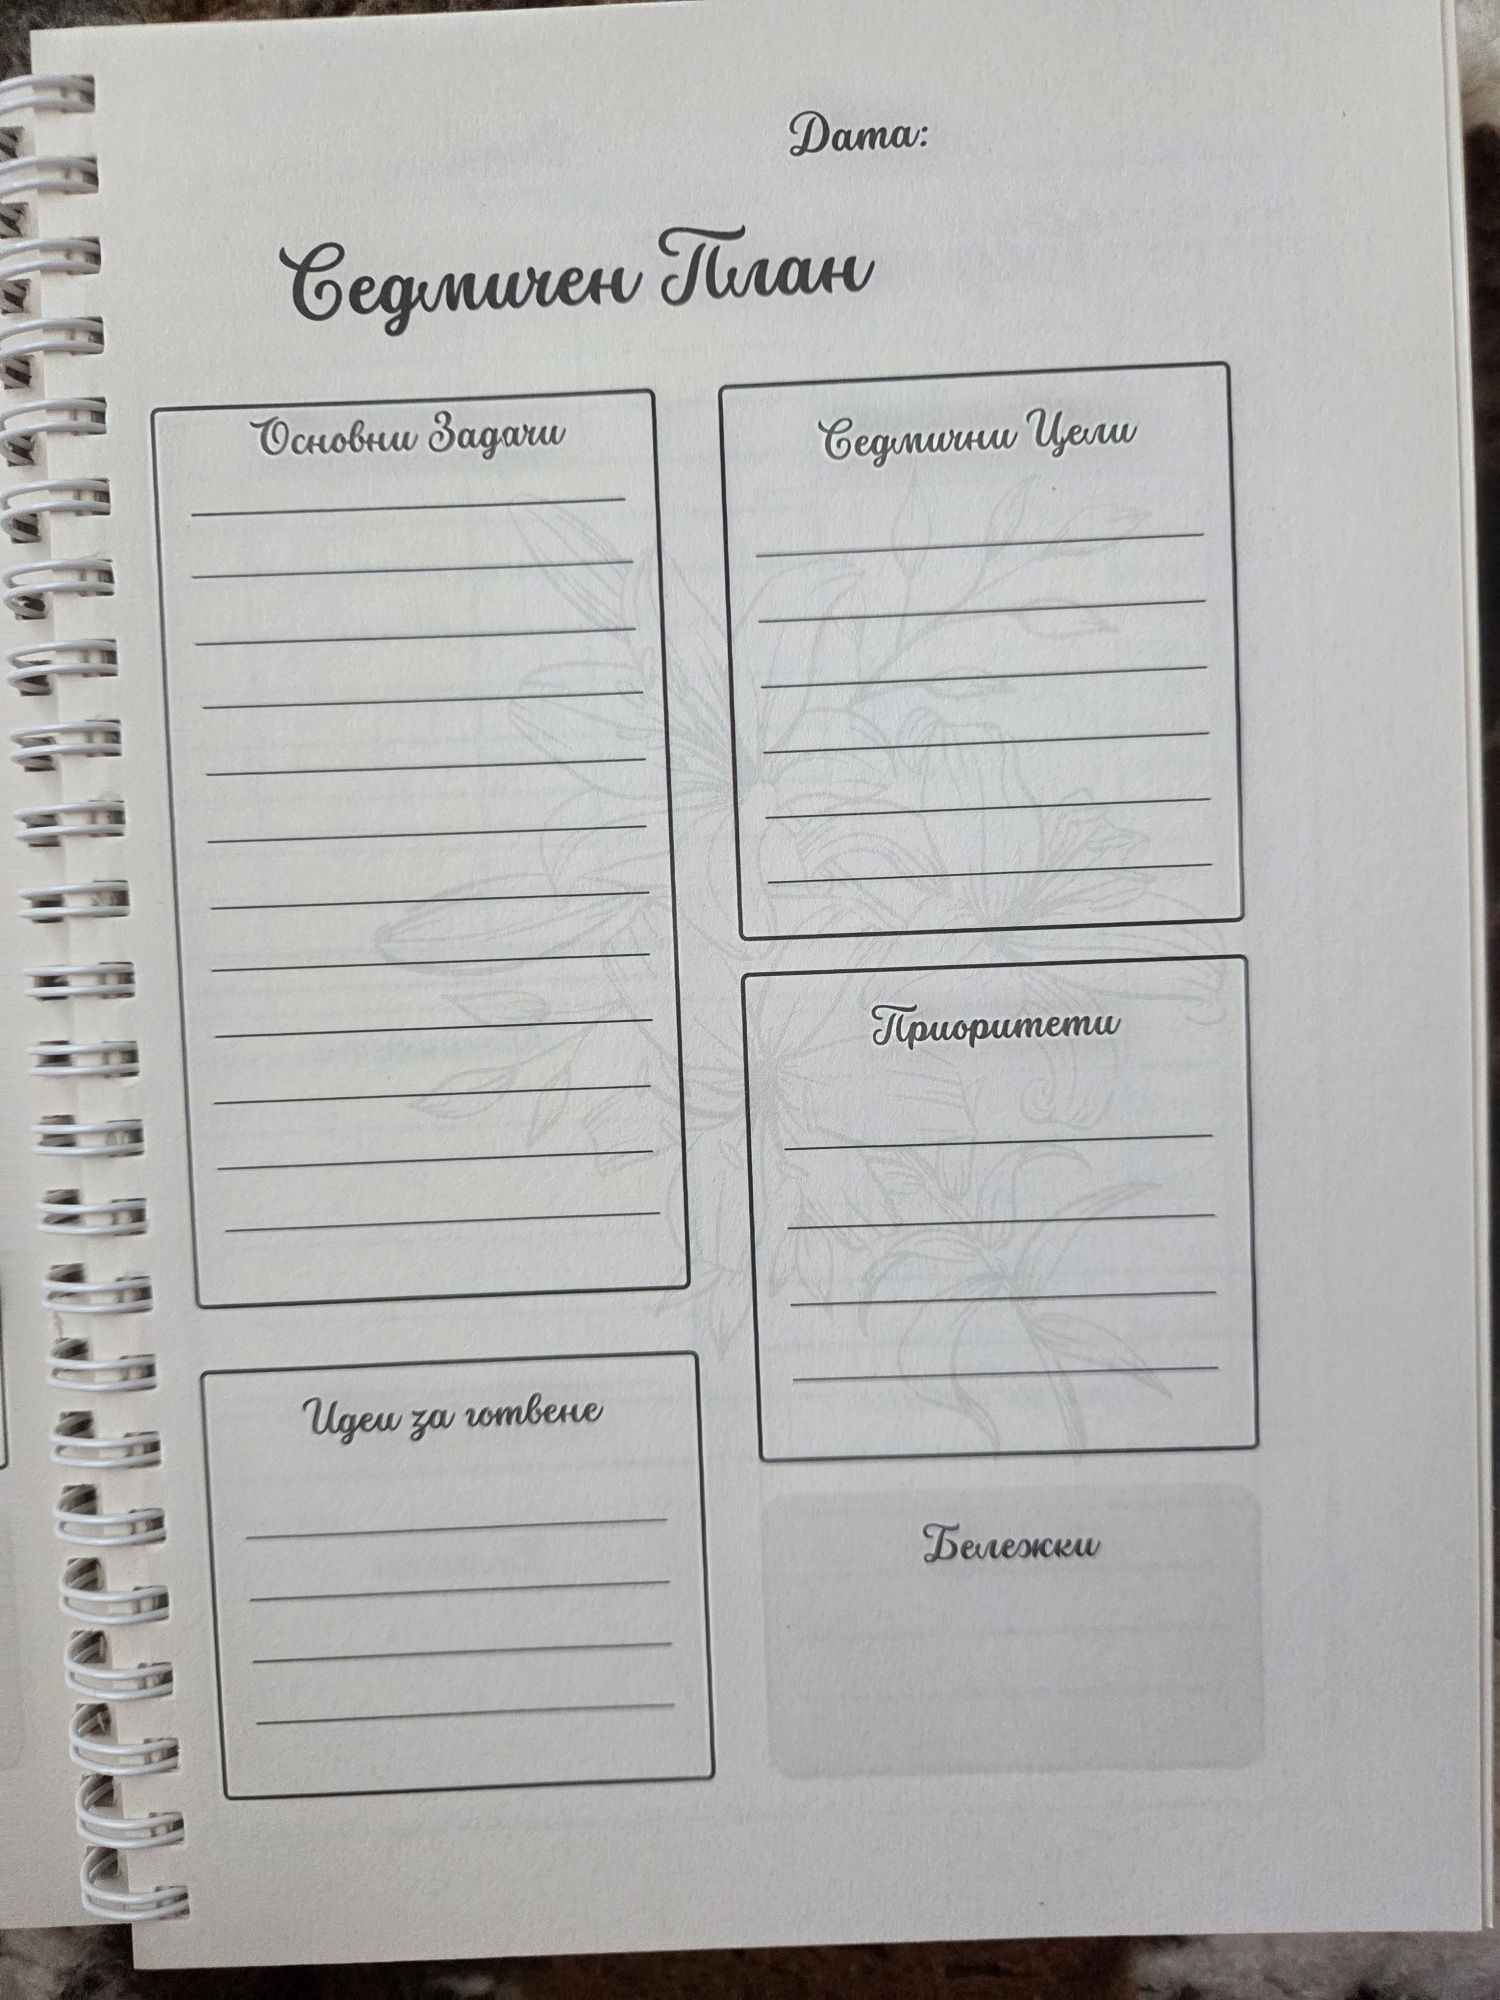 Дата:
Седмичен План
Основни Задачи
Седмични Цели
Приоритети
Идеи за готвене
Бележки